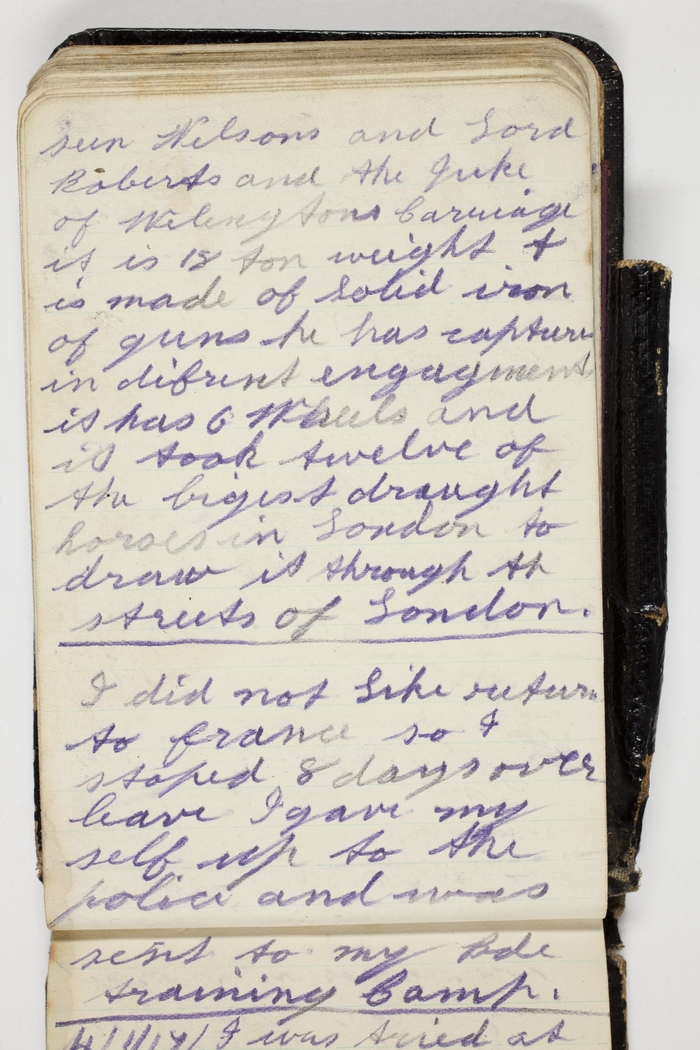 seen Nelsons and Lord
Roberts and the Juke
of Wilengtons Carriage
it is 18 ton weight &
is made of solid iron
of guns he has capture
in difrent engagments
it has 6 Wheels and
it took twelve of
the bigest draught
horses in London to
draw it through th
streets of London.
I did not like return
to france so I
stoped 8 days over
leave I gave my
self up to the
police and was
sent to my Bde
training Camp.
I was tried at